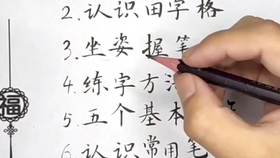 2.认识田字格
3.坐姿握笔
4.练字方法
5.五个基本
6认识常用笔
福